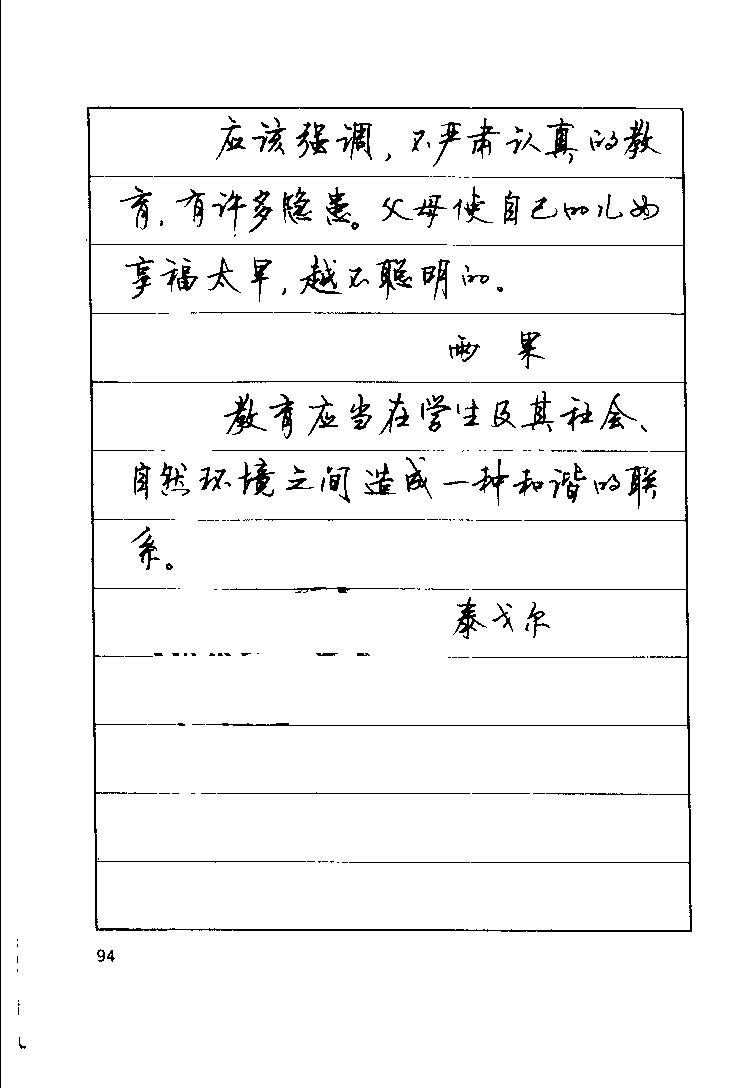 应该强调,不严肃认真的教
育,有许多隐患。父母使自己的儿女
享福太早,越不聪明的。
雨 果
教育应当在学生及其社会、
自然环境之间造成一种和谐的联
系。
泰戈尔
94